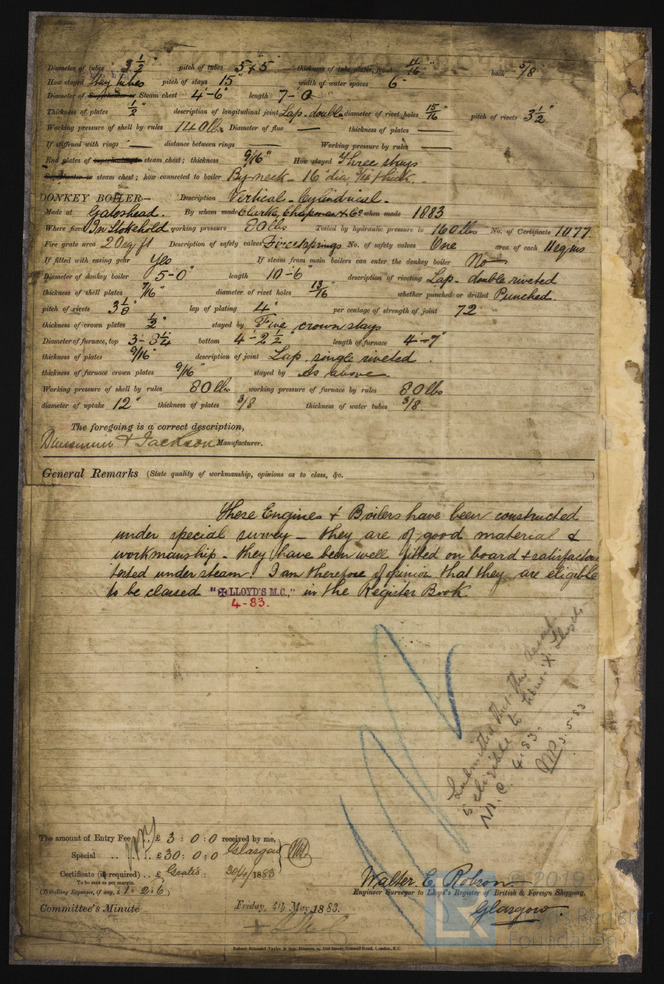 Diameter of tubes 3 1/2" pitch of tubes 5 x 5" thickness of tube plates, front 11/16" back 5/8"
How stayed Stay tubes pitch of stays 15" width of water spaces 6"
Diameter of Superheater or Steam chest 4'-6" length 7-0
Thickness of plates 1/2" description of longitudinal joint Lap-double diameter of rivet holes 15/16" pitch of rivets 3 1/2"
Working pressure of shell by rules 140 lbs Diameter of flue — thickness of plates —
If stiffened with rings — distance between rings — Working pressure by rules —
End plates of superheater or steam chest; thickness 9/16" How stayed Three stays
Superheater or steam chest; how connected to boiler By neck - 16" dia 3/4 thick.
DONKEY BOILER— Description Vertical - Cylindrical.
Made at Gateshead. By whom made Clarke, Chapman & Co when made 1883
Where fixed In Stokehold working pressure 80 lbs Tested by hydraulic pressure to 160 lbs No. of Certificate 1077
Fire grate area 20 sq ft Description of safety valves Direct springs No. of safety valves One area of each
If fitted with easing gear Yes If steam from main boilers can enter the donkey boiler No
Diameter of donkey boiler 5-0" length 10-6" description of riveting Lap - double riveted
thickness of shell plates 7/16" diameter of rivet holes 13/16" whether punched or drilled Punched
pitch of rivets 3 1/8" lap of plating 4" per centage of strength of joint 72
thickness of crown plates 1/2" stayed by Five crown stays
Diameter of furnace, top 3-8 1/4" bottom 4'-2 1/2" length of furnace 4-7"
thickness of plates 9/16" description of joint Lap, single riveted.
thickness of furnace crown plates 9/16" stayed by As above.
Working pressure of shell by rules 80 lbs working pressure of furnace by rules 80 lbs
diameter of uptake 12" thickness of plates 3/8 thickness of water tubes 3/8
The foregoing is a correct description,
& Jackson Manufacturer.
General Remarks (State quality of workmanship, opinions as to class, &c.
These Engines & Boilers have been constructed
under special survey - they are of good material &
workmanship - they have been well fitted on board & satisfactorily
tested under steam. I am therefore of opinion that they are eligible
to be classed "✠LLOYD'S M.C." in the Register Book
4-83.
Submitted that this vessel
is eligible to have ✠ Lloyds
M.C. 4.83.
3.5.83
The amount of Entry Fee .. £ 3 : 0 : 0 received by me,
Special .. .. £30 : 0 : 0 Glasgow
Certificate (if required) .. £ Gratis : 30/4/1883
To be sent as per margin.
(Travelling Expenses, if any, £1 : 2 : 6)
Walter C. Robson
Engineer Surveyor to Lloyd's Register of British & Foreign Shipping.
Glasgow.
Committee's Minute Friday, 4th May 1883.
© 2019
Lloyd's Register
Foundation